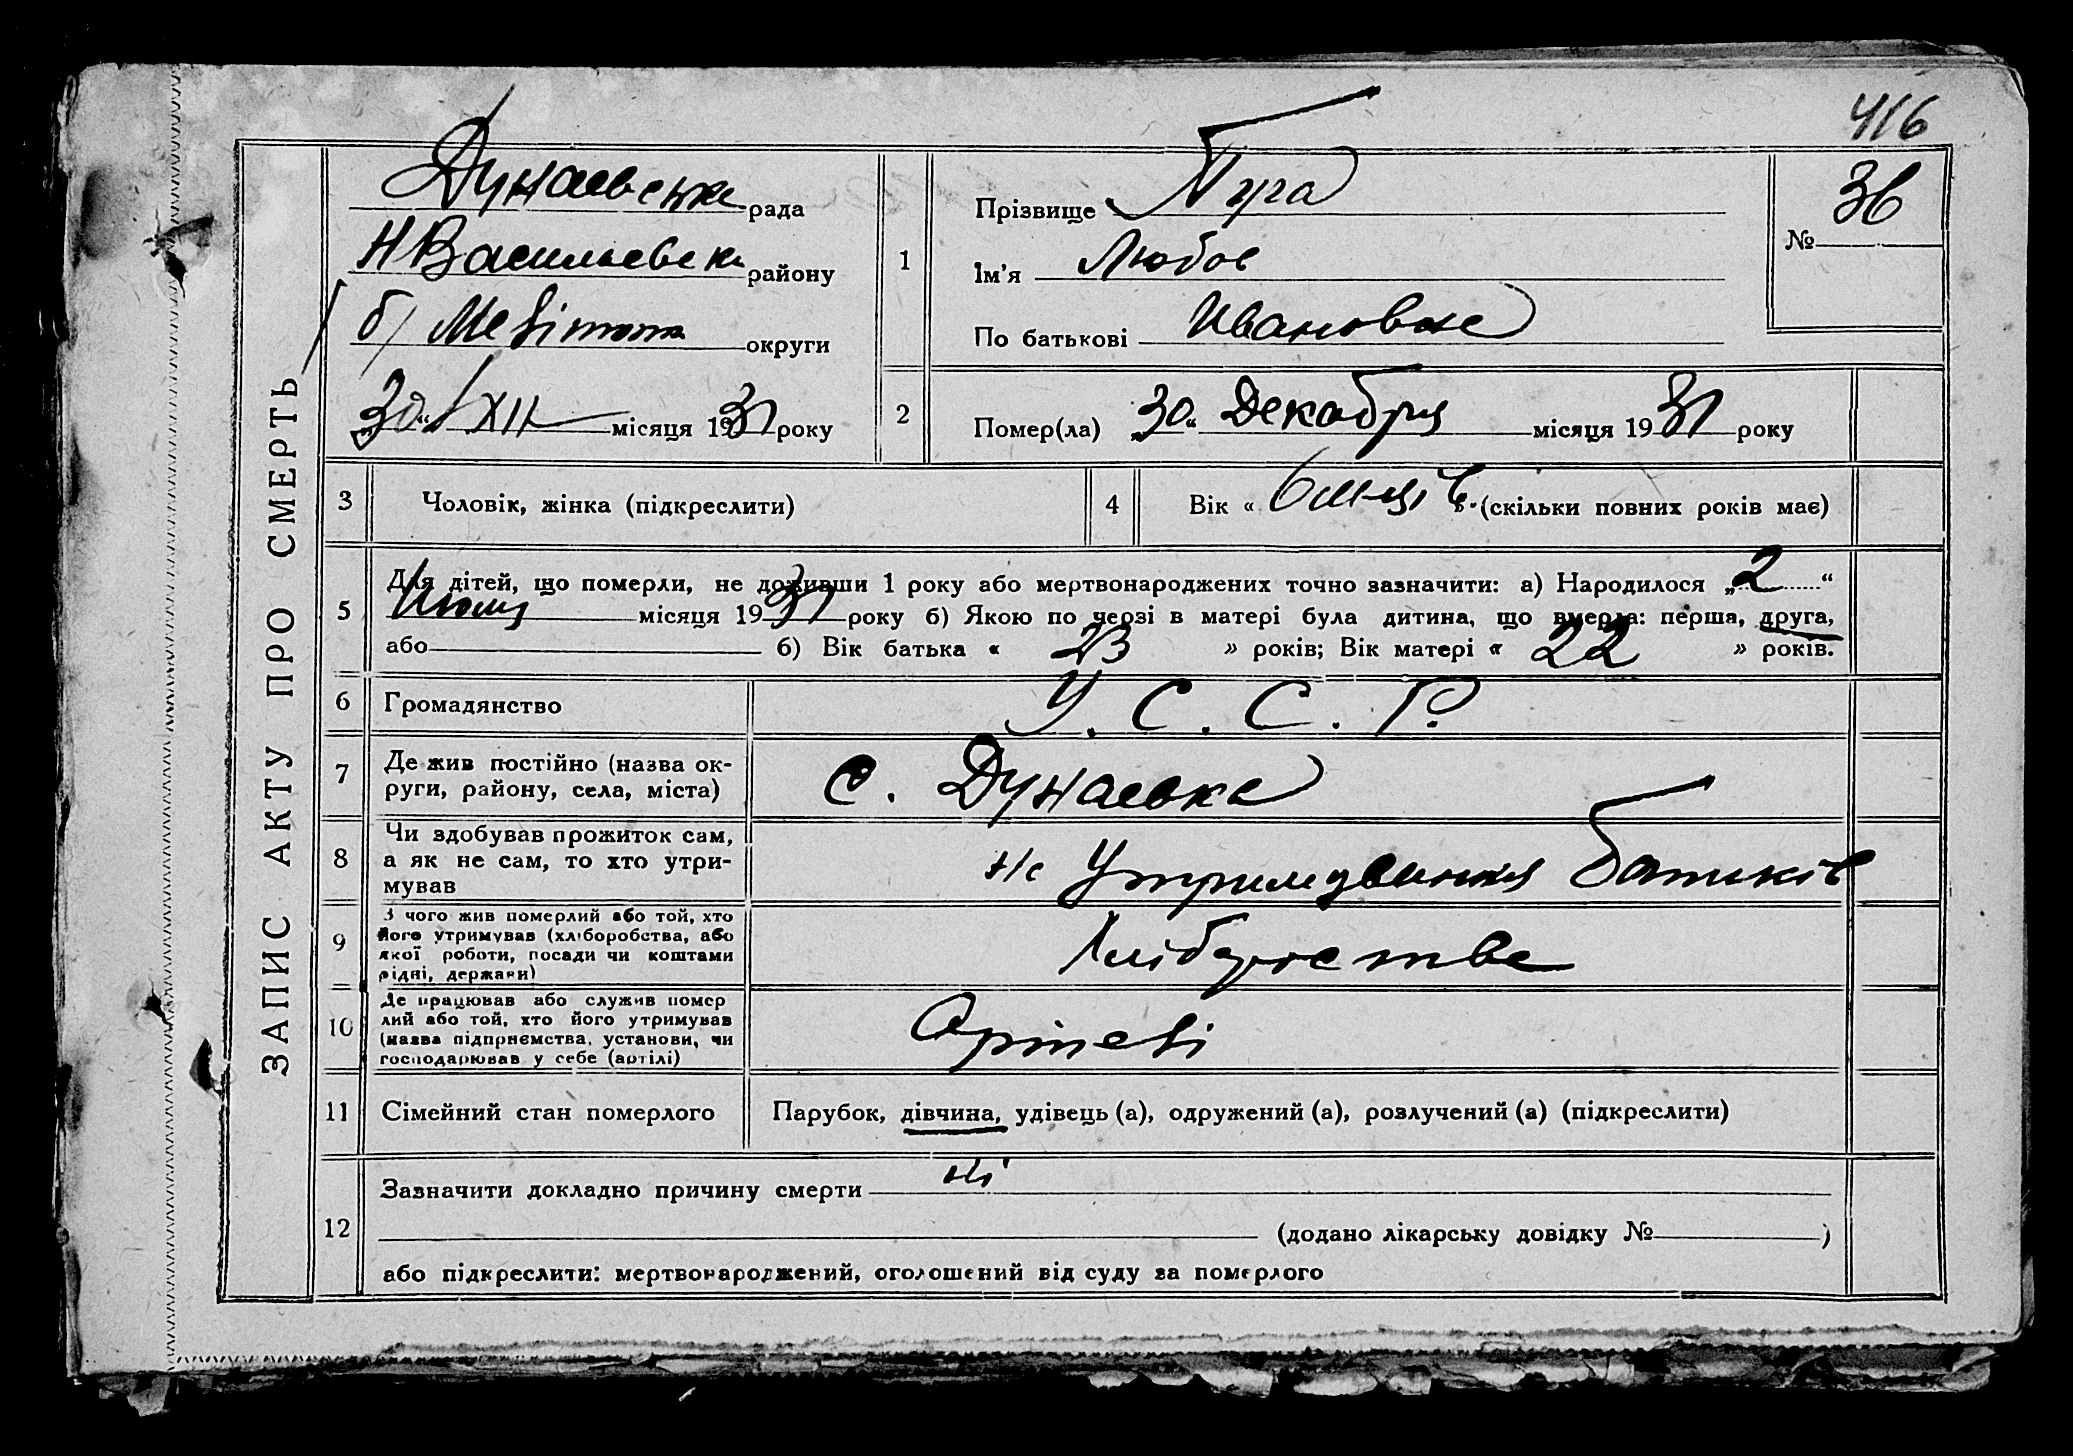 416
Дунаевська рада
НВасильевск району
б/ Мелітоп округи
„30“ XII місяця 1931 року
ЗАПИС АКТУ ПРО СМЕРТЬ
1
Прізвище Пуга
Ім'я Любов
По батькові Ивановна
№ 36
2 Помер(ла) „30“ Декабря місяця 1931 року
3 Чоловік, жінка (підкреслити)
4 Вік « 6 місяців » (скільки повних років має)
5 Для дітей, що померли, не доживши 1 року або мертвонароджених точно зазначити: а) Народилося „2“
Июля місяця 1931 року б) Якою по черзі в матері була дитина, що вмерла: перша, друга,
або б) Вік батька « 23 » років; Вік матері « 22 » років.
6 Громадянство У.С.С.Р.
7 Де жив постійно (назва ок-
руги, району, села, міста) с. Дунаевка
8 Чи здобував прожиток сам,
а як не сам, то хто утри-
мував
на Утримування батьків
9 З чого жив померлий або той, хто
його утримував (хліборобства, або
якої роботи, посади чи коштами
рідні, держави)
10 Де працював або служив помер
лий або той, хто його утримував
(назва підприємства, установи, чи
господарював у себе (артілі)
Артелі
11 Сімейний стан померлого Парубок, дівчина, удівець (а), одружений (а), розлучений (а) (підкреслити)
12 Зазначити докладно причину смерти ні
(додано лікарську довідку № )
або підкреслити: мертвонароджений, оголошений від суду за померлого